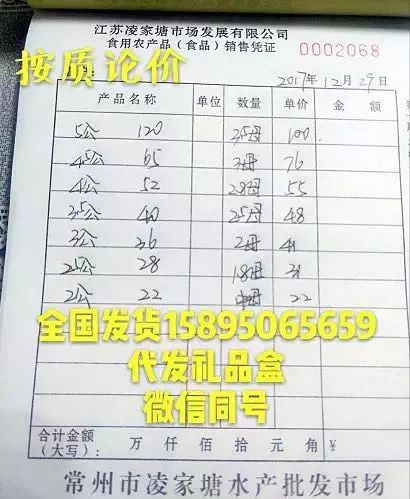 江苏凌家塘市场发展有限公司
食用农产品（食品）销售凭证 0002068
按质论价
2017年12月29日
产品名称 单位 数量 单价 金额
5公 120 3.5母 100
4.5公 65 3母 76
4公 52 2.8母 55
3.5公 40 2.5母 48
3公 36 2母 41
2.5公 28 1.8母 31
2公 22 母 22
全国发货15895065659
代发礼品盒
微信同号
合计金额
（大写）： 万 仟 佰 拾 元 角 ¥
常州市凌家塘水产批发市场